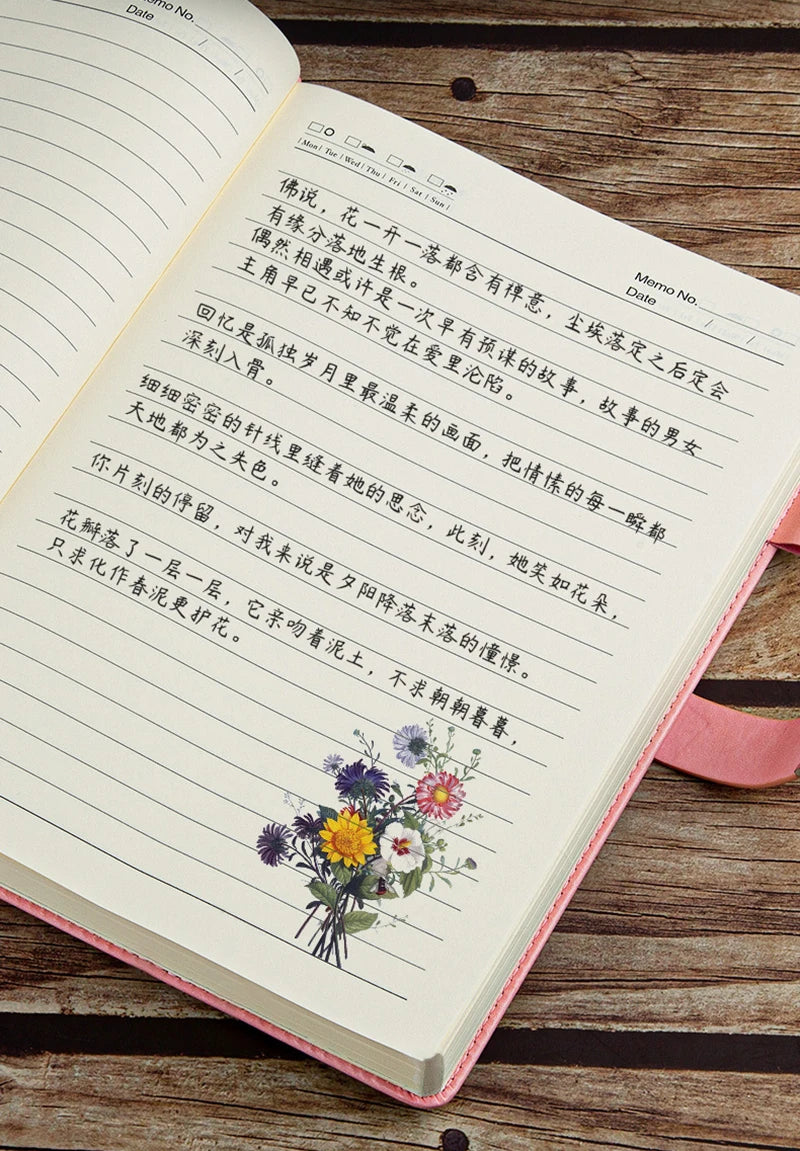 emo No.
Date / /
Mon Tue Wed Thu Fri Sat Sun
Memo No.
Date / /
佛说，花一开一落都含有禅意，尘埃落定之后定会
有缘分落地生根。
偶然相遇或许是一次早有预谋的故事，故事的男女
主角早已不知不觉在爱里沦陷。
回忆是孤独岁月里最温柔的画面，把情愫的每一瞬都
深刻入骨。
细细密密的针线里缝着她的思念，此刻，她笑如花朵，
天地都为之失色。
你片刻的停留，对我来说是夕阳降落未落的憧憬。
花瓣落了一层一层，它亲吻着泥土，不求朝朝暮暮，
只求化作春泥更护花。